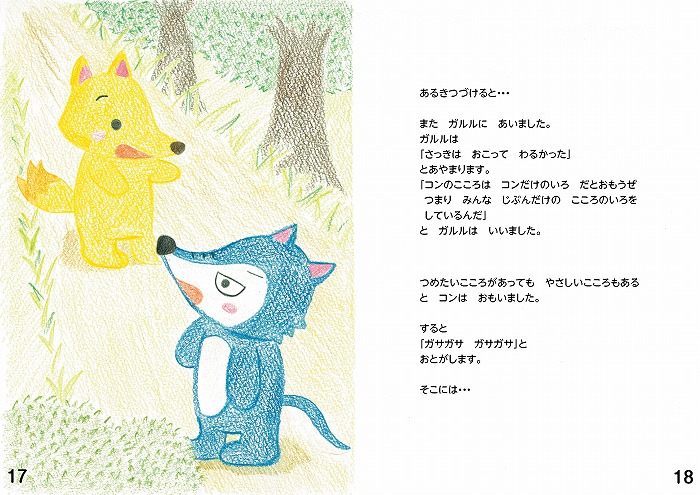 あるきつづけると・・・
また　ガルルに　あいました。
ガルルは
「さっきは　おこって　わるかった」
とあやまります。
「コンのこころは　コンだけのいろ　だとおもうぜ
つまり　みんな　じぶんだけの　こころのいろを
しているんだ」
と　ガルルは　いいました。
つめたいこころがあっても　やさしいこころもある
と　コンは　おもいました。
すると
「ガサガサ　ガサガサ」と
おとがします。
そこには・・・
17
18